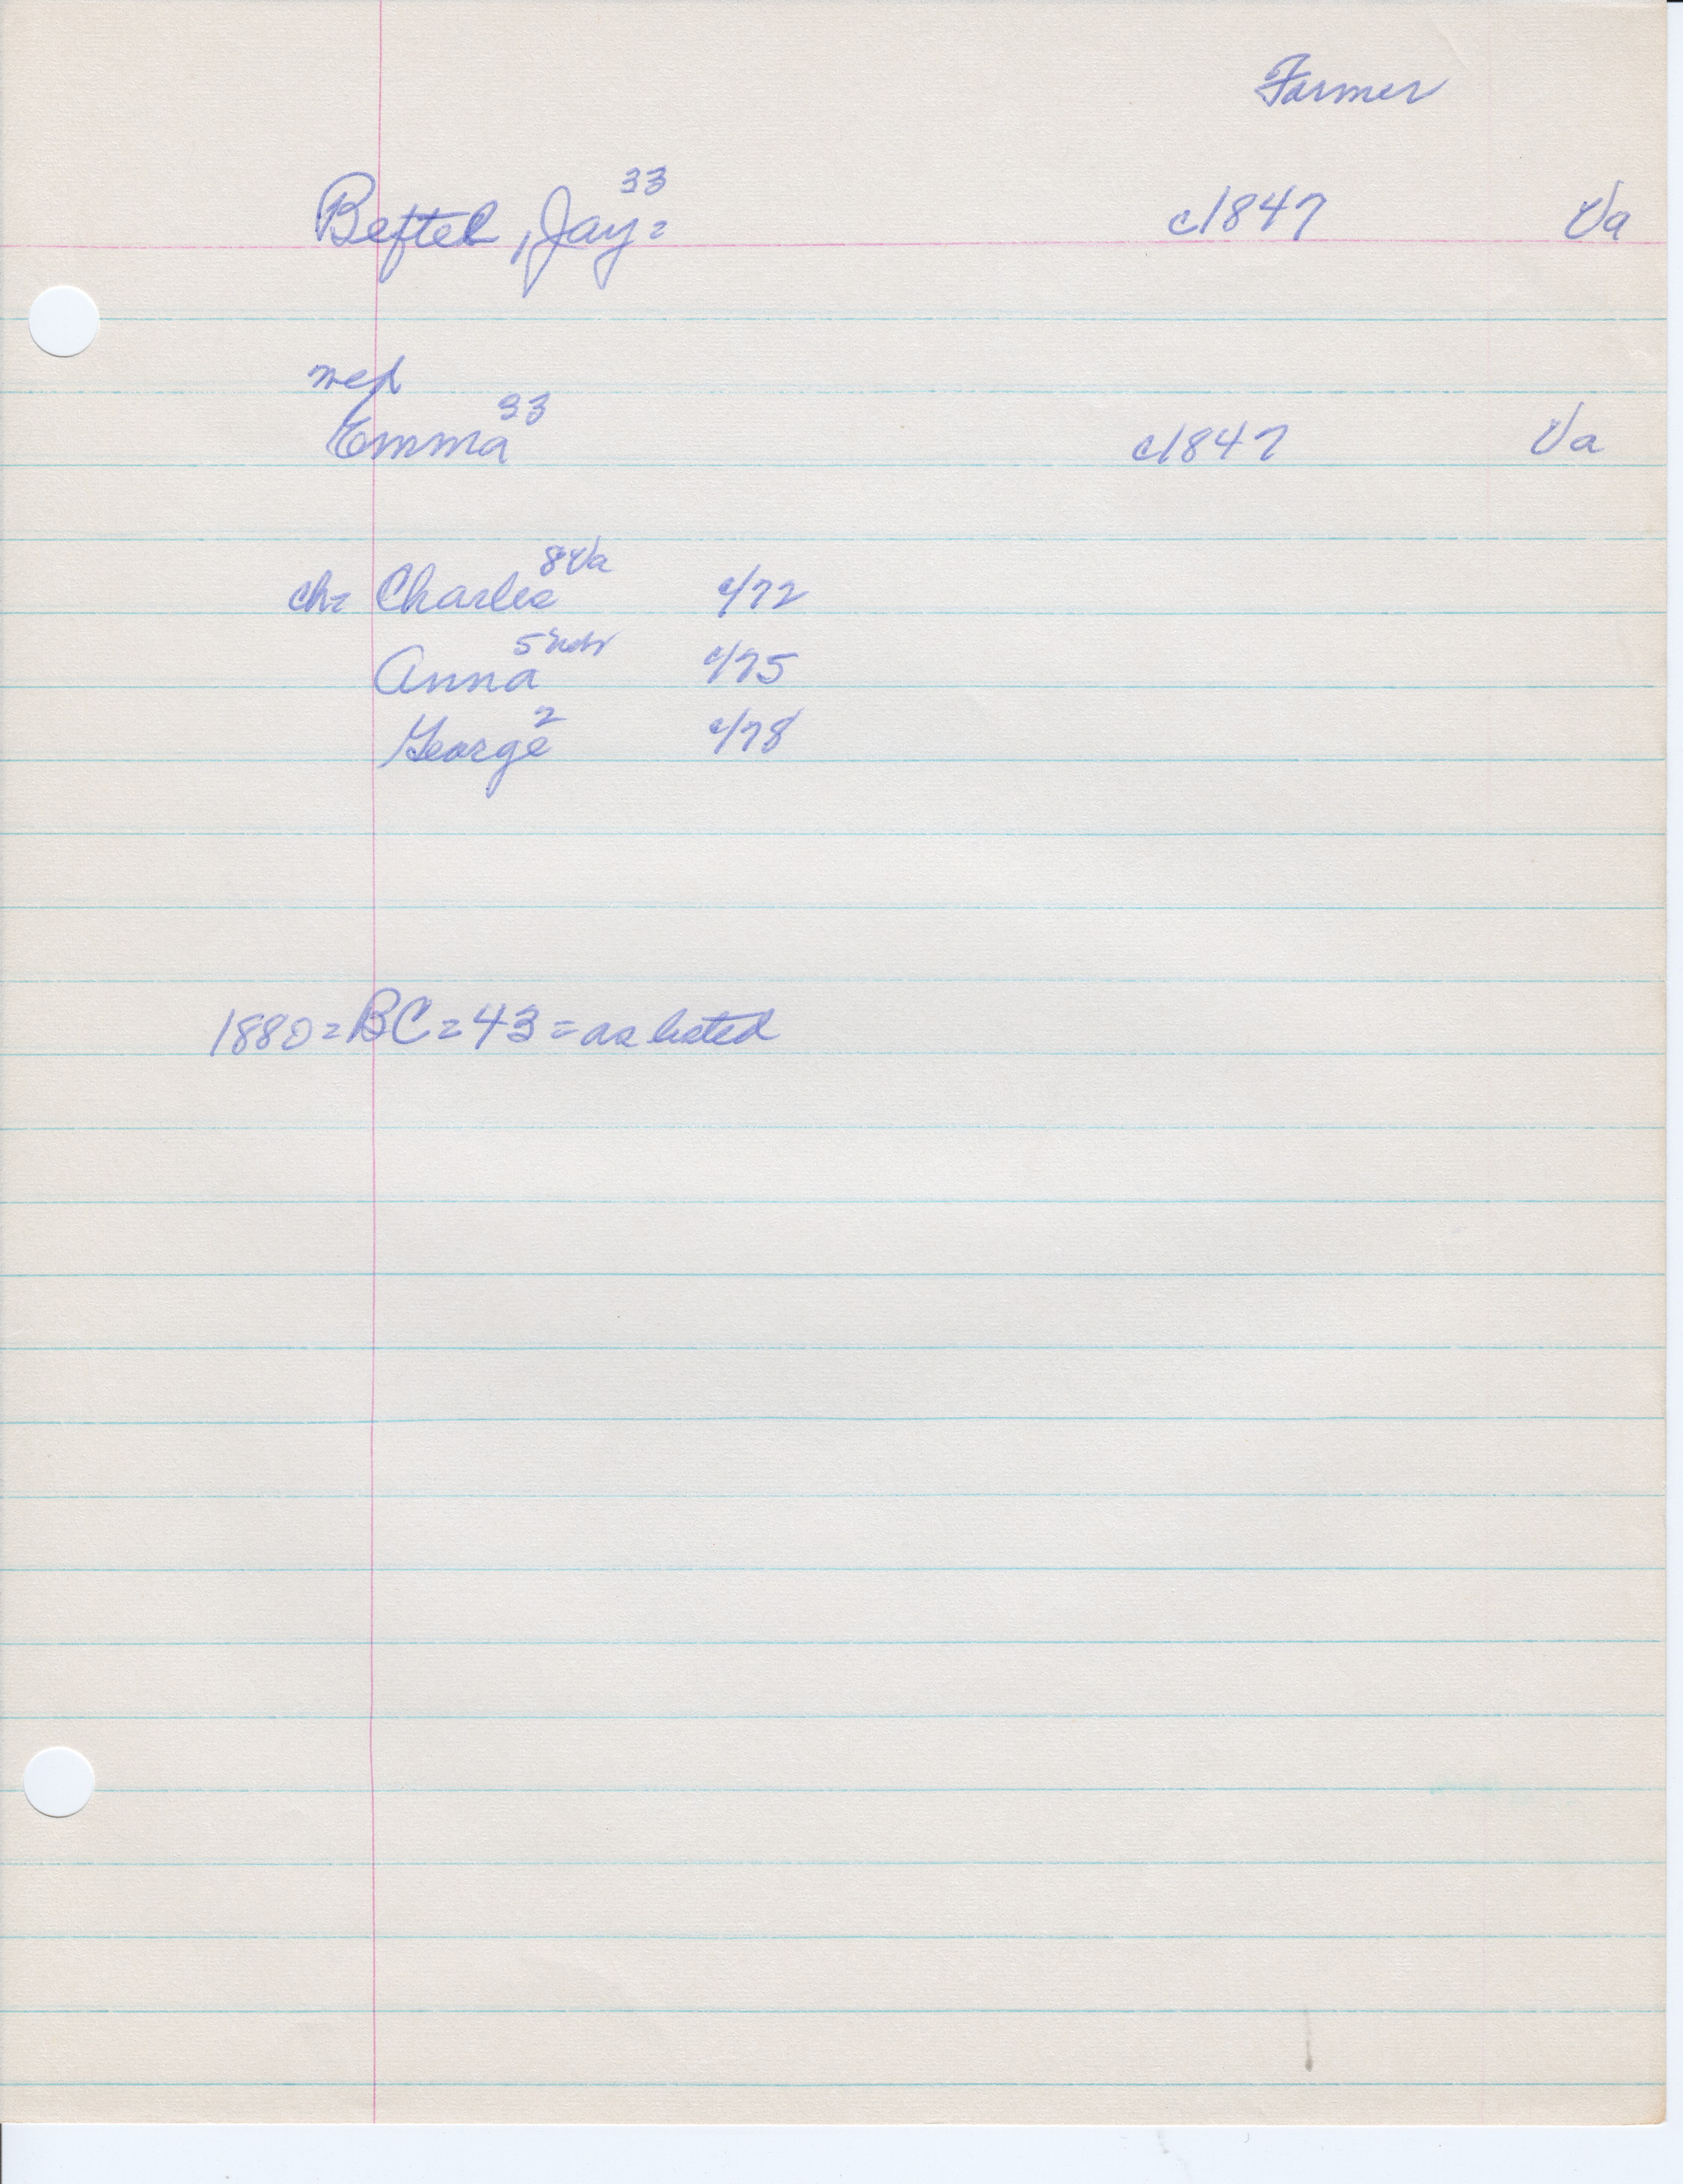 Farmer
Beftel, Jay= 33 c1847 Va
med
Emma 33 c1847 Va
ch= Charles 8 Va c/72
Anna 5 Nebr c/75
George 2 c/78
1880=BC=43=as listed